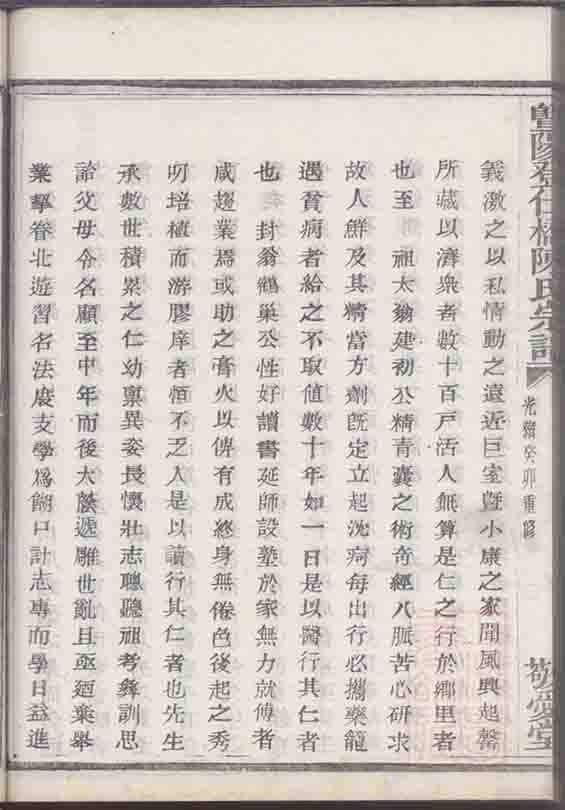 暨陽登仕橋陳氏宗譜
光緒癸卯重修
敬愛堂
義激之以私情動之遠近巨室曁小康之家聞風興起罄
所藏以濟衆者數十百戶活人無算是仁之行於鄉里者
也至 祖太翁建初公精青囊之術奇經八脈苦心研求
故人鮮及其精當方劑旣定立起沈疴每出行必攜藥籠
遇貧病者給之不取値數十年如一日是以醫行其仁者
也 封翁鶴巢公性好讀書延師設塾於家無力就傅者
咸趨業焉或助之膏火以俾有成終身無倦色後起之秀
叨培植而游膠庠者恒不乏人是以讀行其仁者也先生
承數世積累之仁幼禀異姿長懷壯志聰聽祖考彝訓思
詒父母令名顧至中年而後大蔭遞雕世亂且亟廼棄舉
業挈眷北遊習名法度支學爲餬口計志專而學日益進